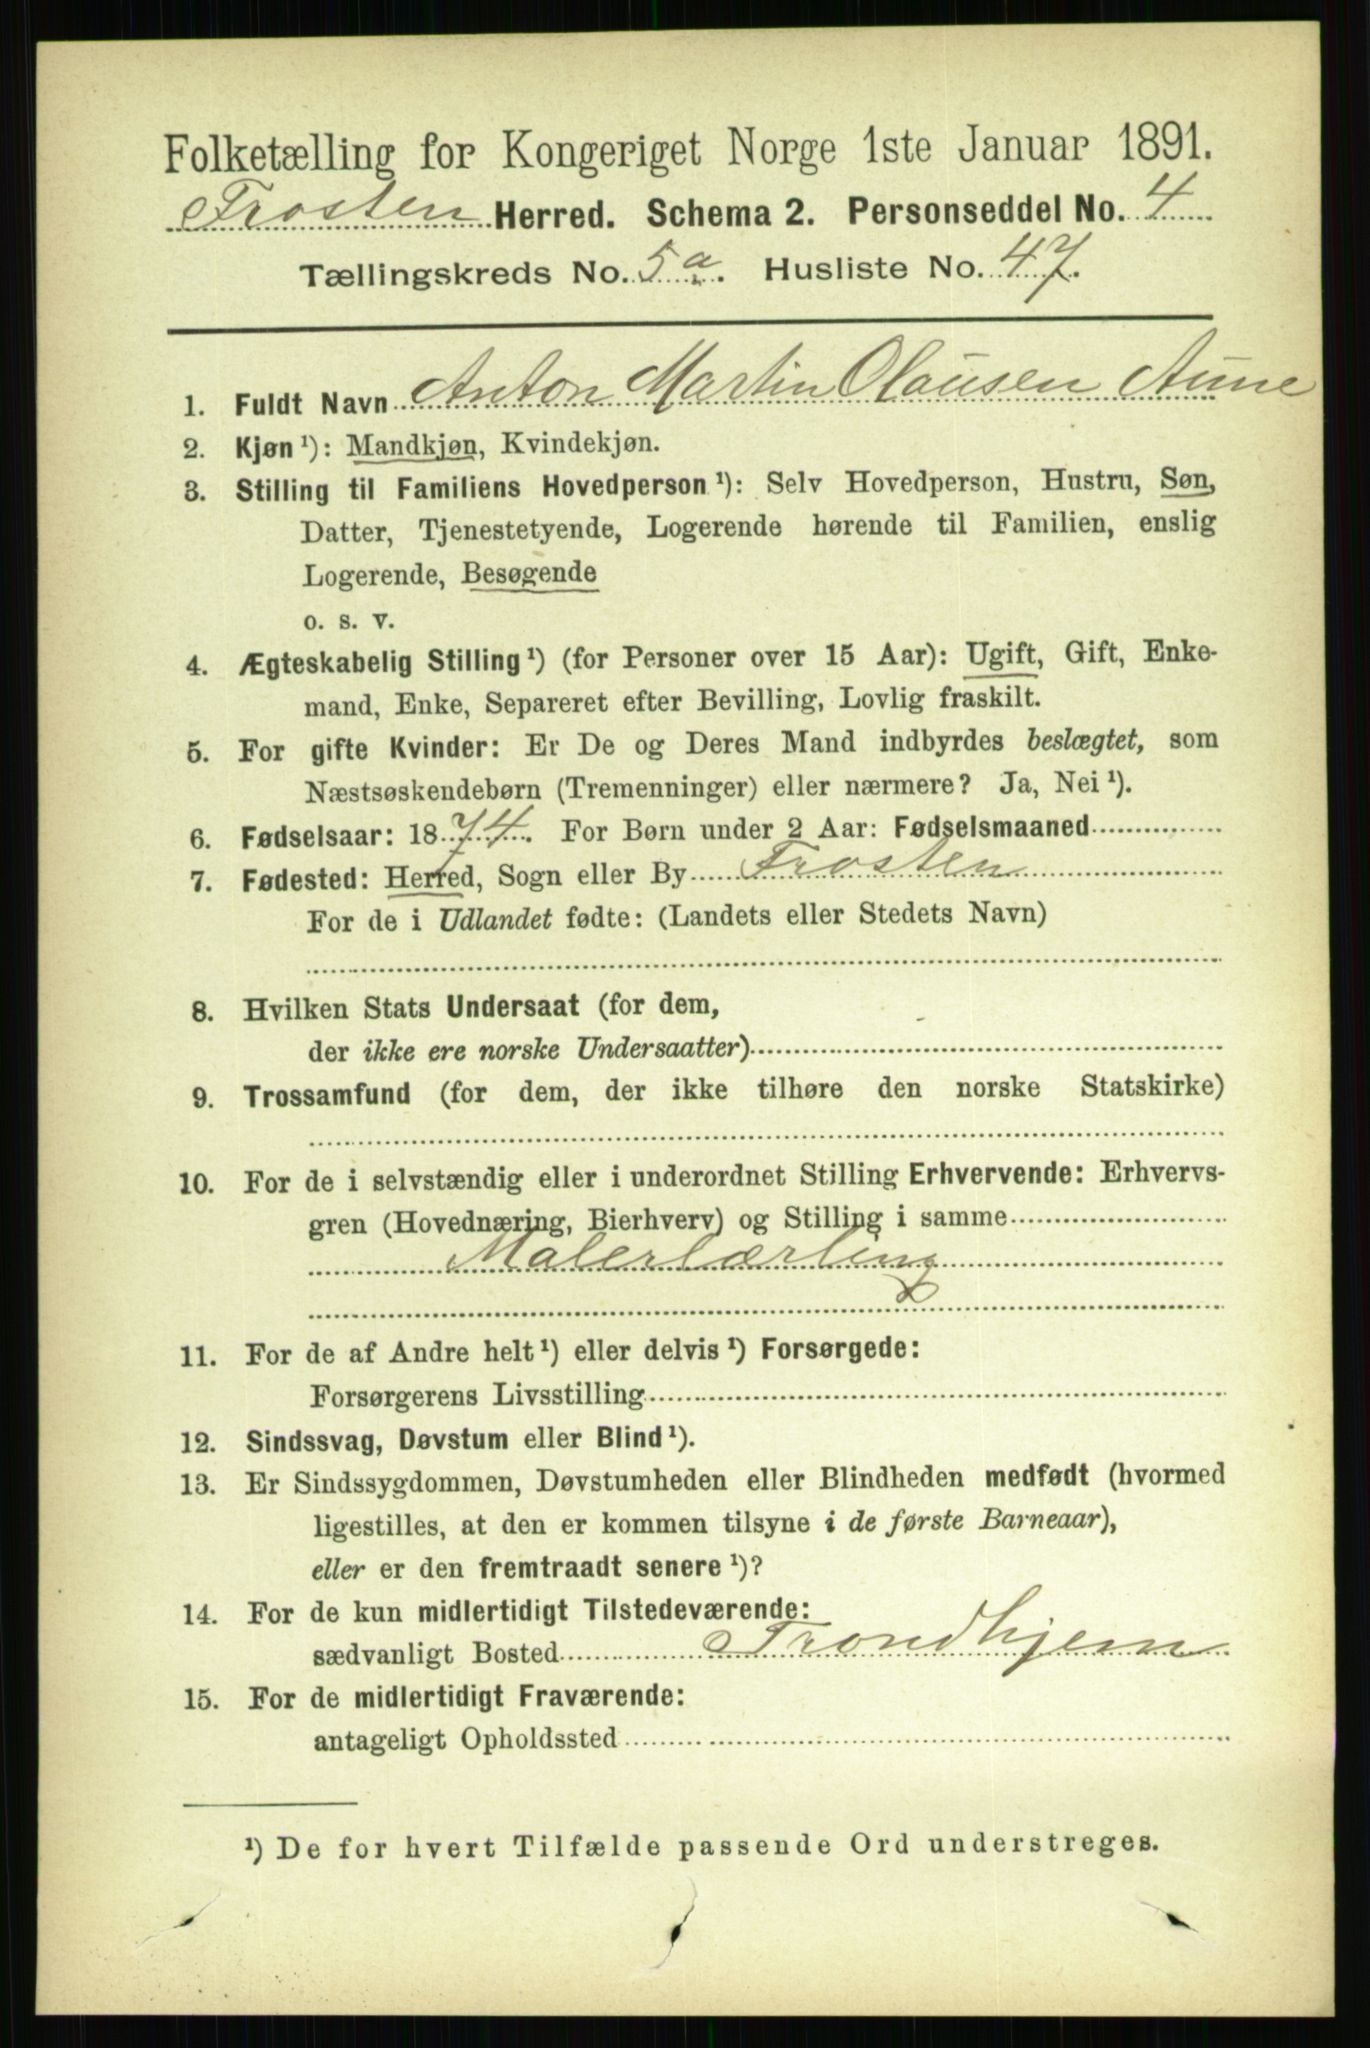 Folketælling for Kongeriget Norge 1ste Januar 1891.
Frosten Herred. Schema 2. Personseddel No. 4
Tællingskreds No. 5a. Husliste No. 47.
1. Fuldt Navn Anton Martin Olausen Aune
2. Kjøn ¹): Mandkjøn, Kvindekjøn.
3. Stilling til Familiens Hovedperson ¹): Selv Hovedperson, Hustru, Søn,
Datter, Tjenestetyende, Logerende hørende til Familien, enslig
Logerende, Besøgende
o. s. v.
4. Ægteskabelig Stilling ¹) (for Personer over 15 Aar): Ugift, Gift, Enke-
mand, Enke, Separeret efter Bevilling, Lovlig fraskilt.
5. For gifte Kvinder: Er De og Deres Mand indbyrdes beslægtet, som
Næstsøskendebørn (Tremenninger) eller nærmere? Ja, Nei ¹).
6. Fødselsaar: 1874. For Børn under 2 Aar: Fødselsmaaned
7. Fødested: Herred, Sogn eller By Frosten
For de i Udlandet fødte: (Landets eller Stedets Navn)
8. Hvilken Stats Undersaat (for dem,
der ikke ere norske Undersaatter)
9. Trossamfund (for dem, der ikke tilhøre den norske Statskirke)
10. For de i selvstændig eller i underordnet Stilling Erhvervende: Erhvervs-
gren (Hovednæring, Bierhverv) og Stilling i samme
Malerlærling
11. For de af Andre helt ¹) eller delvis ¹) Forsørgede:
Forsørgerens Livsstilling
12. Sindssvag, Døvstum eller Blind ¹).
13. Er Sindssygdommen, Døvstumheden eller Blindheden medfødt (hvormed
ligestilles, at den er kommen tilsyne i de første Barneaar),
eller er den fremtraadt senere ¹)?
14. For de kun midlertidigt Tilstedeværende:
sædvanligt Bosted Trondhjem
15. For de midlertidigt Fraværende:
antageligt Opholdssted
¹) De for hvert Tilfælde passende Ord understreges.